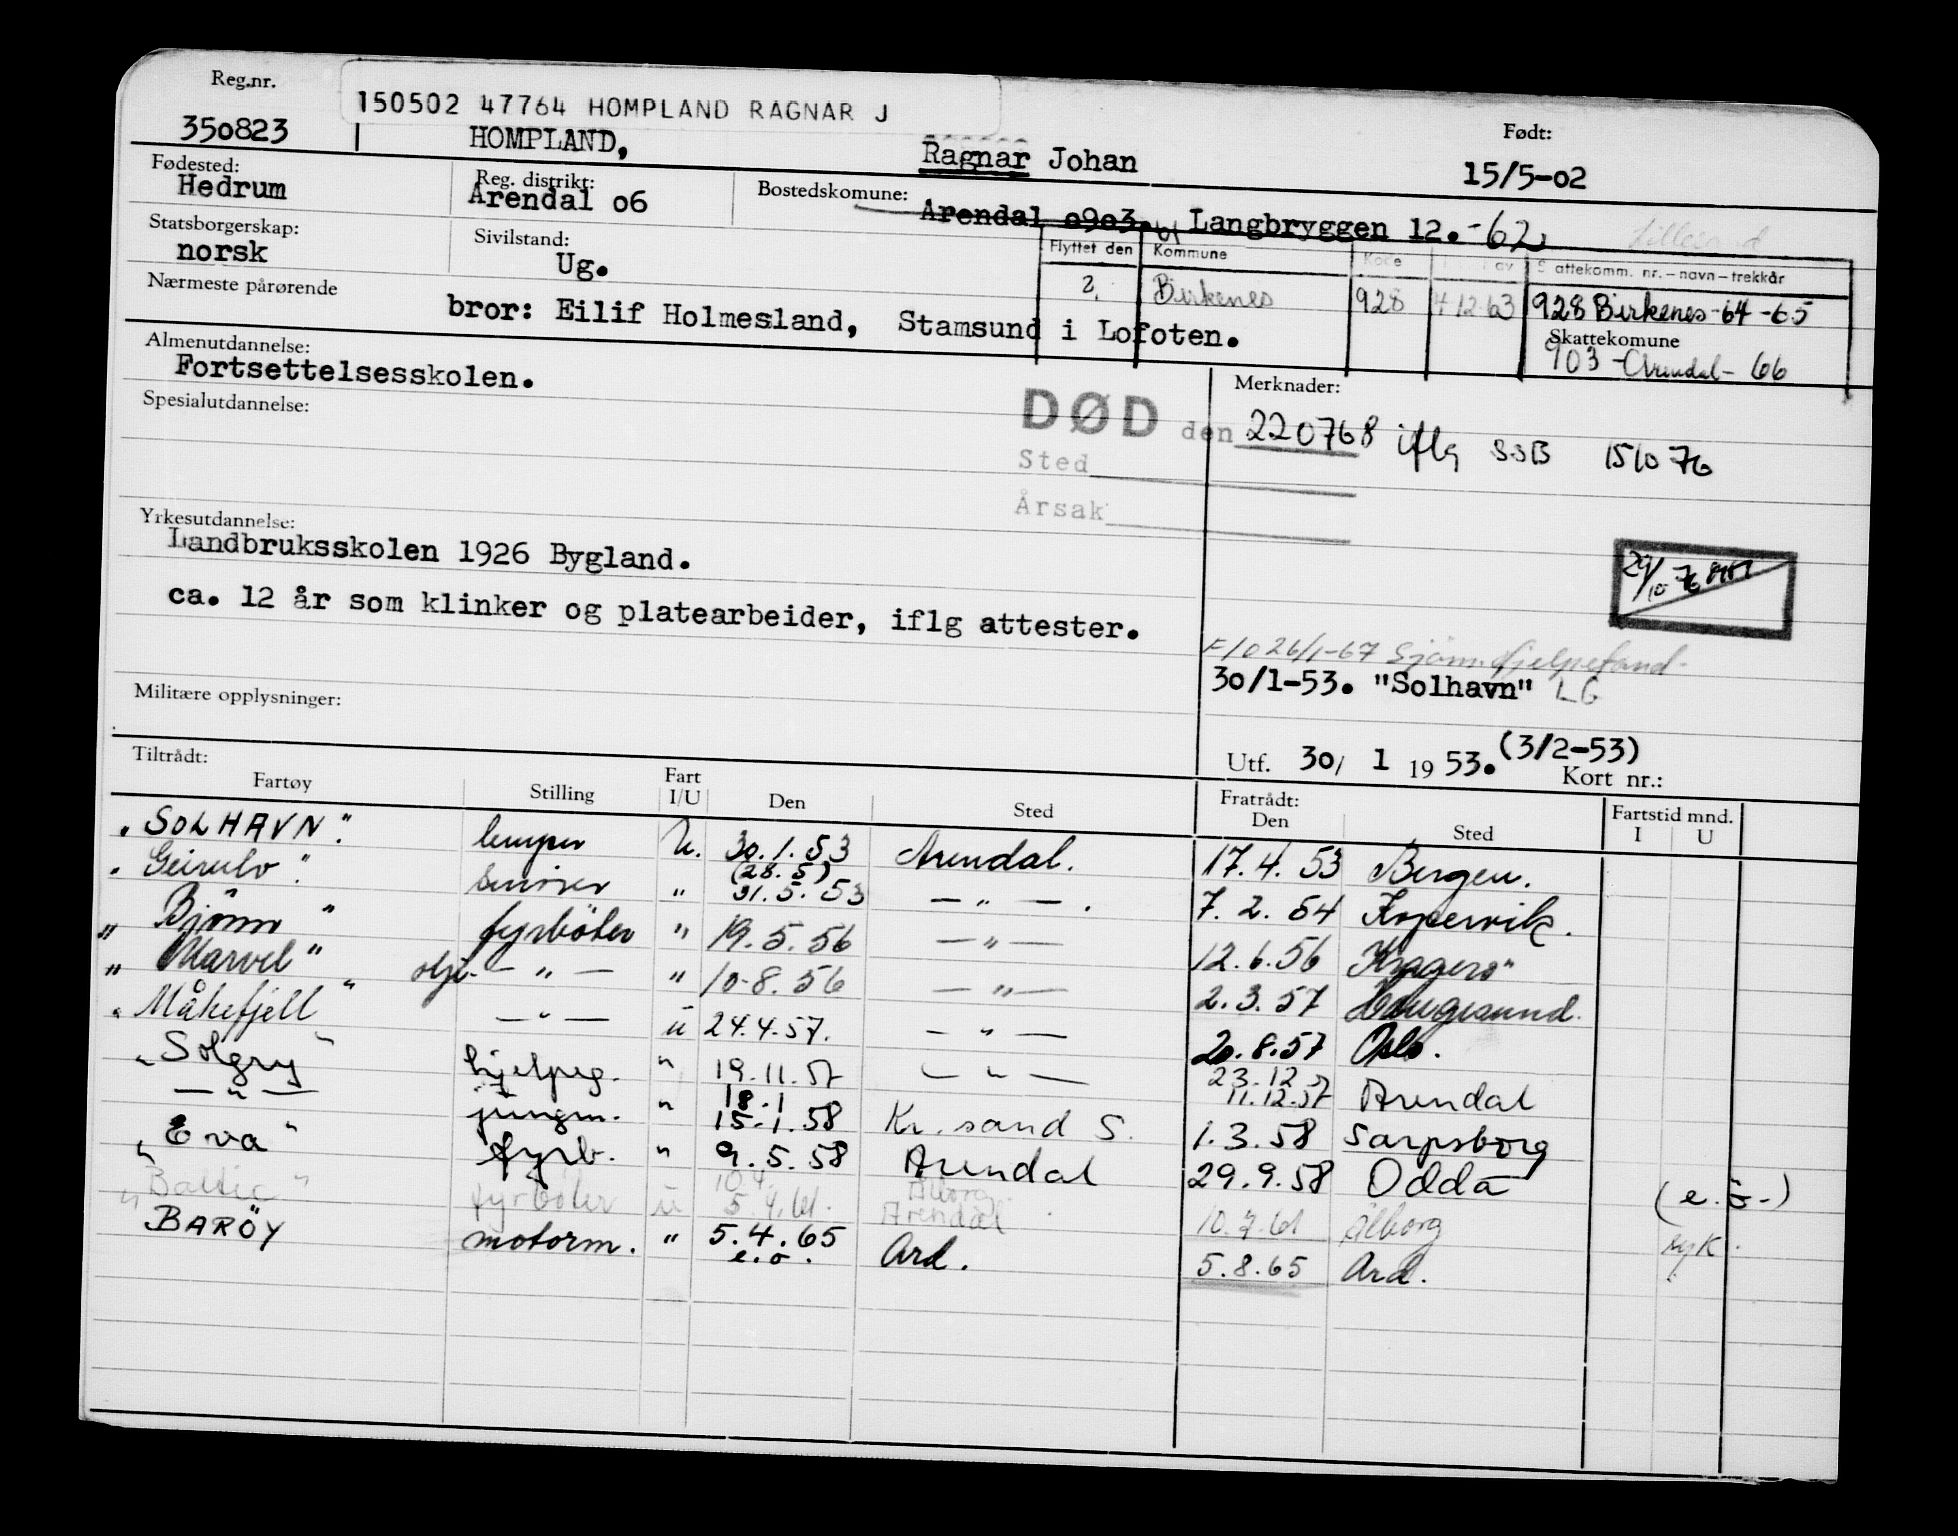 Reg.nr.
150502 47764 HOMPLAND RAGNAR J
350823 HOMPLAND, Ragnar Johan
Født:
15/5-02
Fødested:
Hedrum
Reg. distrikt:
Arendal o6
Bostedskomune:
Arendal o9o3. 61 Langbryggen 12.-62 Lillesand
Statsborgerskap:
norsk
Sivilstand:
Ug.
Flyttet den Kommune Kode Skattekomm. nr. – navn – trekkår
2. Birkenes 928 4 12 63 928 Birkenes-64-65
Nærmeste pårørende
bror: Eilif Holmesland, Stamsund i Lofoten.
Skattekomune
903 - Arendal - 66
Almenutdannelse:
Fortsettelsesskolen.
Merknader:
Spesialutdannelse:
DØD den 220768 iflg SSB 151076
Sted
Årsak
Yrkesutdannelse:
Landbruksskolen 1926 Bygland.
29/10-76
ca. 12 år som klinker og platearbeider, iflg attester.
F/O 26/1-67 Sjøm.hjelpefond-
30/1-53. "Solhavn" LG
Militære opplysninger:
Utf. 30/ 1 1953. (3/2-53)
Kort nr.:
Tiltrådt:
Fartøy Stilling Fart I/U Den Sted Fratrådt: Den Sted Fartstid mnd. I U
"SOLHAVN". lemper U. 30.1.53 Arendal. 17.4.53 Bergen.
"Geirulv". smører " (28.5) 31.5.53 — " — . 7.2.54 Kopervik.
" Bjönn " fyrböter " 19.5.56 — " — 12.6.56 Kragerø
" Marvel " olje- — " — " 10-8.56 — " — 2.3.57 Haugesund.
" Måkefjell " — " — u 24.4.57. — " — 20.8.57 Oslo.
" Solgry " hjelpeg. " 19.11.57 — " — 23.12.57 11.12.57 Arendal
— " — jungm. " 18.1 15.1.58 Kr.sand S. 1.3.58 Sarpsborg
" Eva " fyrb. " 9.5.58 Arendal 29.9.58 Odda (e.ö.)
" Baltic " fyrböter u 10.4. 5.4.61. Ålborg Arendal 10.7.61 Ålborg syk.
BARÖY motorm. " 5.4.65 e.o. Ard. 5.8.65 Ard.